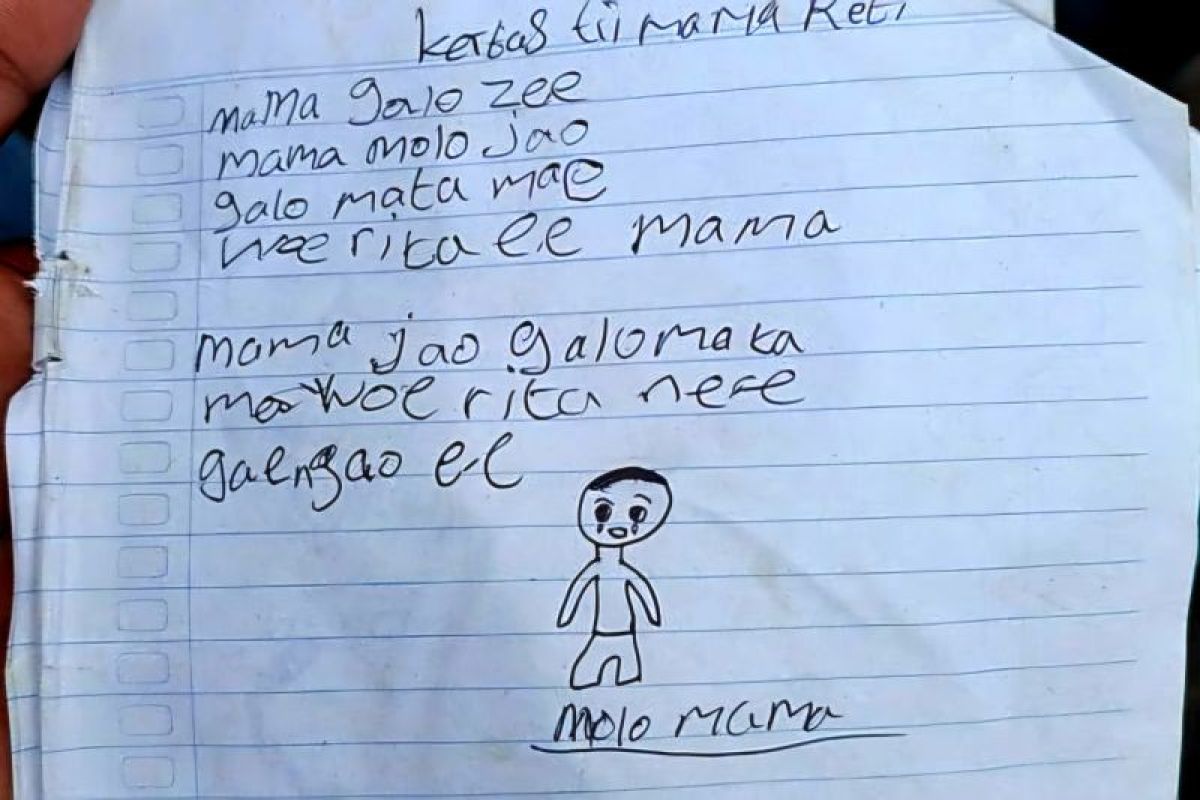 kertas tii mama Reti
mama galo zee
mama molo jao
galo mata mae
woe rita ee mama
mama jao galo mata
mae woe rita ne e
gaengao ee
molo mama